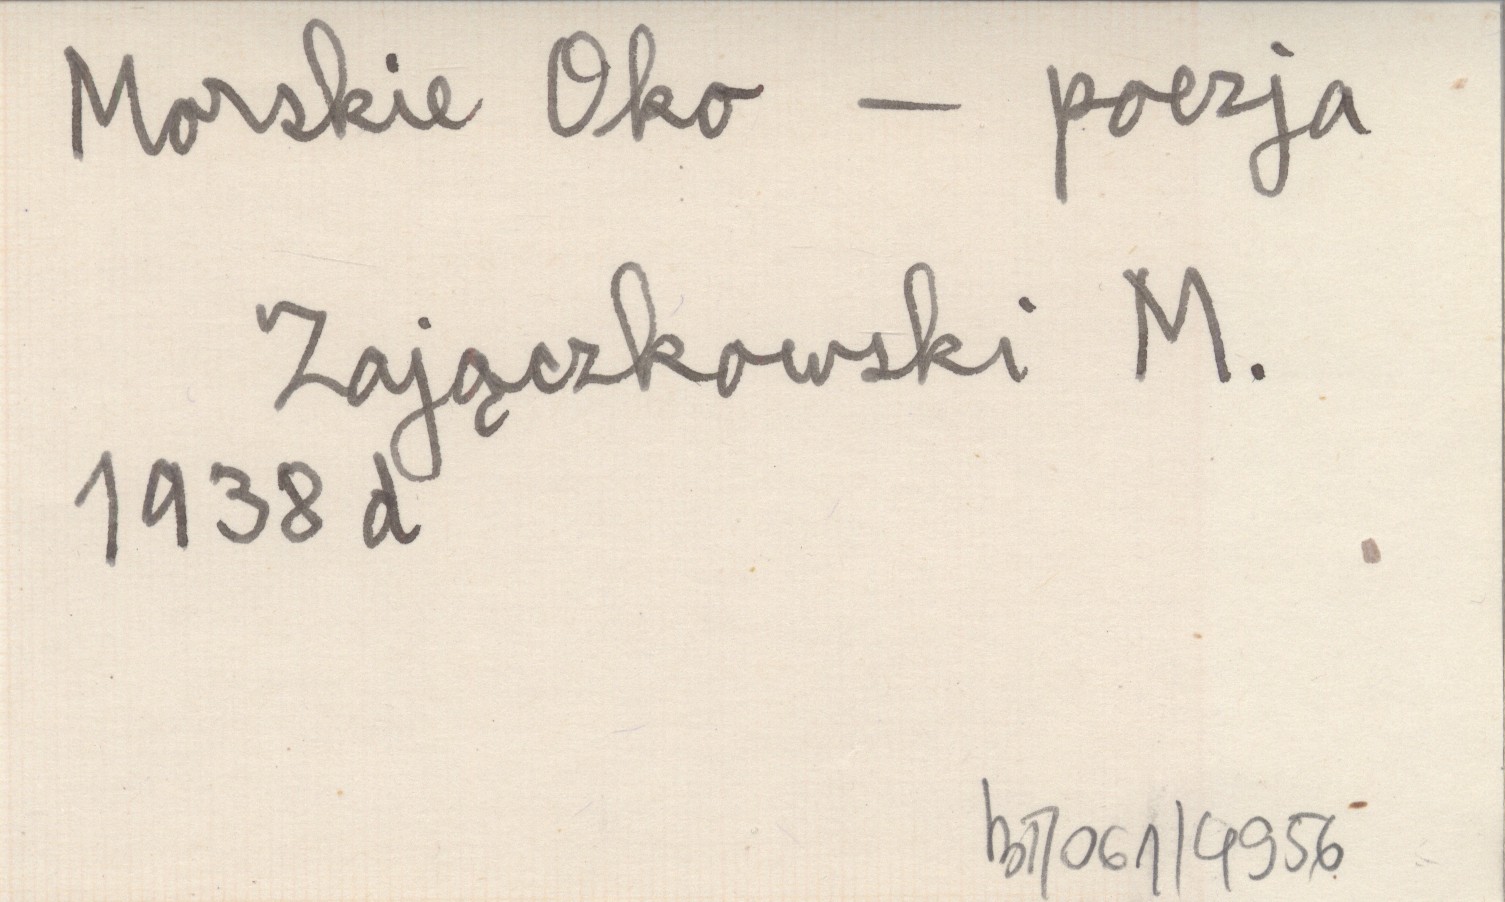 Morskie Oko — poezja
Zajączkowski M.
1938 d
/061/4956